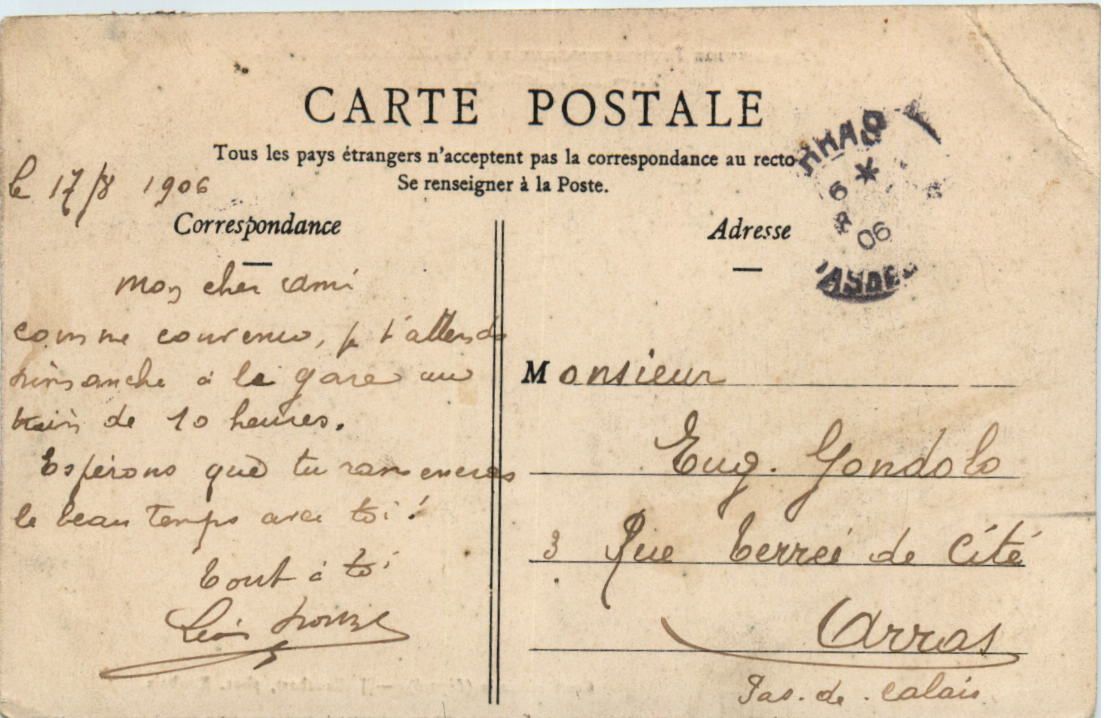 CARTE POSTALE
Tous les pays étrangers n'acceptent pas la correspondance au recto
Se renseigner à la Poste.
le 17/8 1906
Correspondance
Mon cher ami
comme convenu, je t'attends
dimanche à la gare au
train de 10 heures.
Espérons que tu ramèneras
le beau temps avec toi!
tout à toi
Léon
Adresse
6
*
06
Monsieur
Eug. Gondolo
3 Rue Terrée de Cité
Arras
Pas-de-Calais